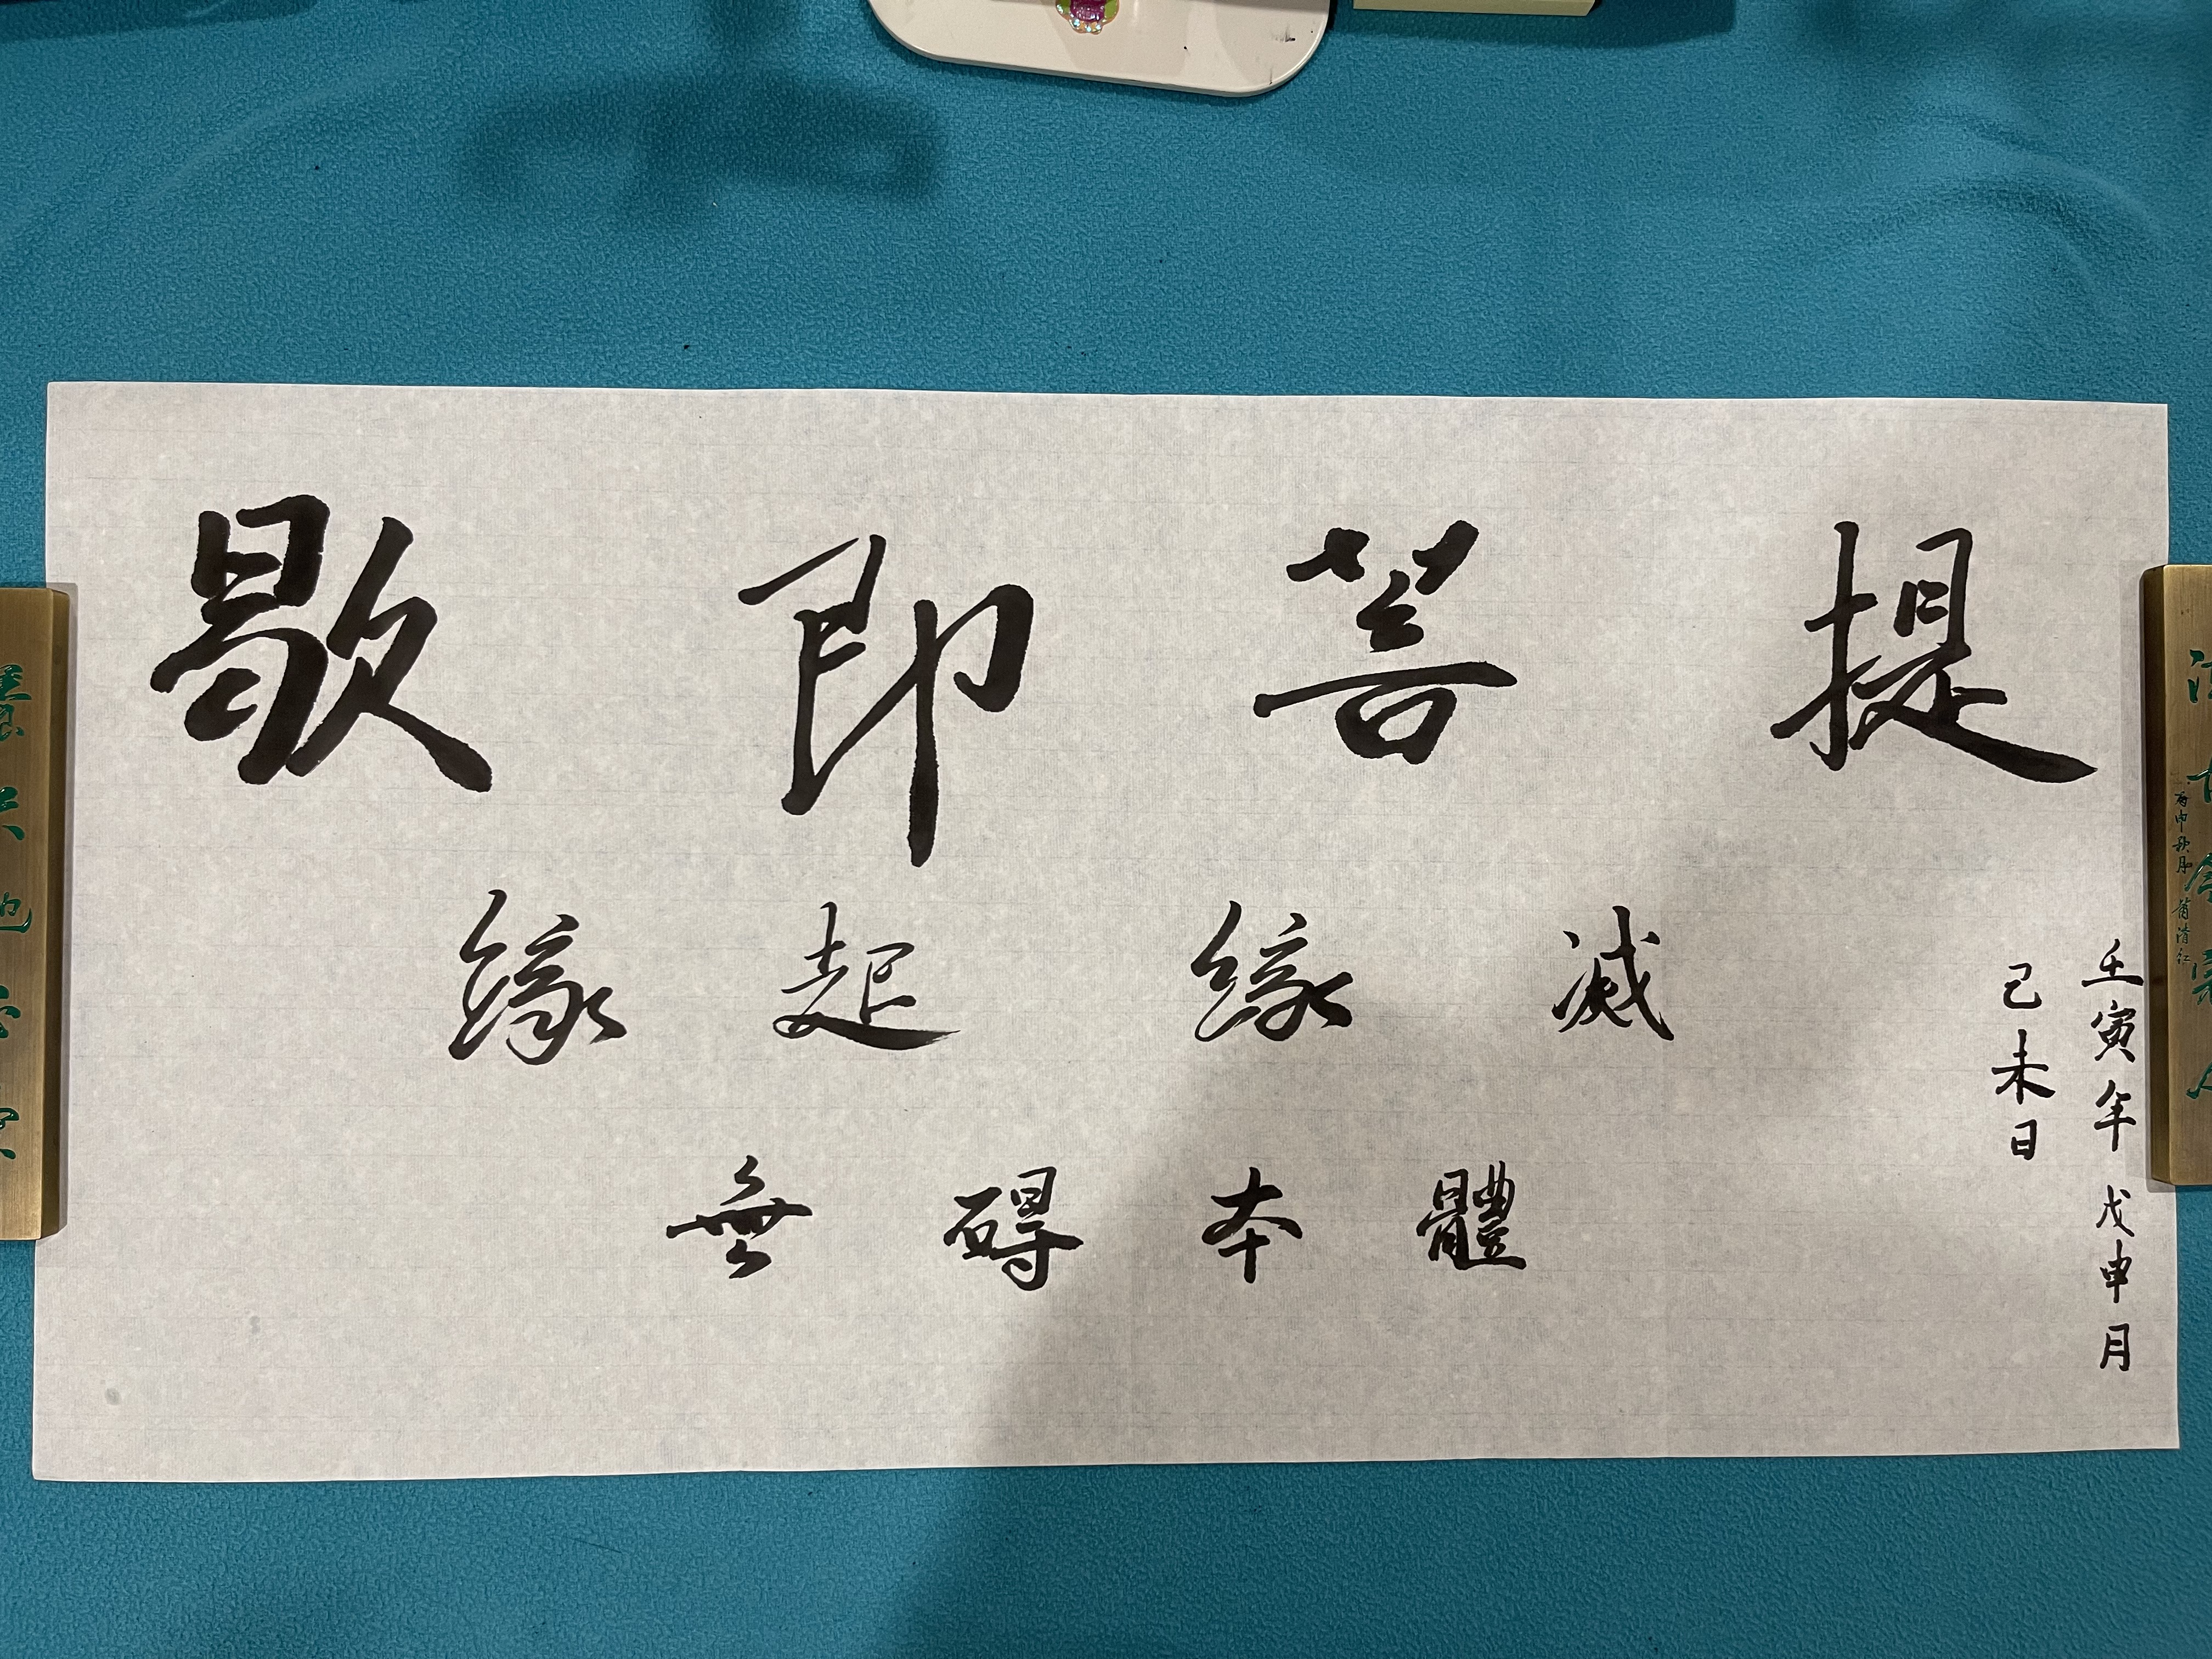 歇即菩提
緣起緣滅
無碍本體
壬寅年戊申月
己未日